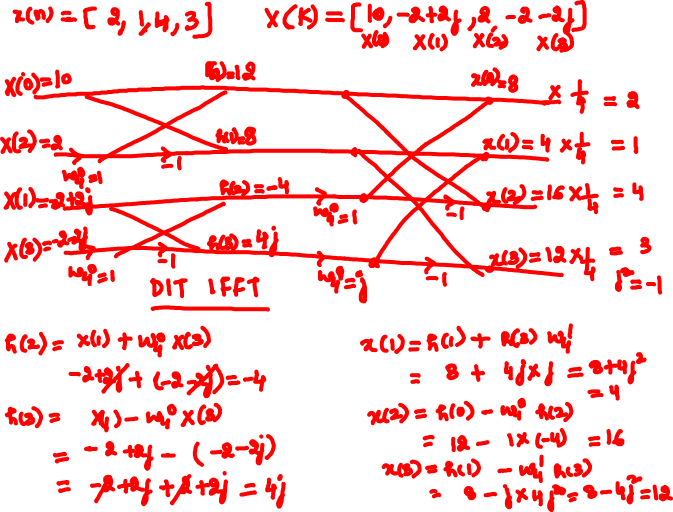 x(n) = [ 2, 1, 4, 3 ] X(K) = [ 10, -2+2j , 2, -2 -2j ]
X(0) X(1) X(2) X(3)
X(0)=10 h(0)=12 x(0)=8 × 1/4 = 2
X(2)=2 h(1)=8 x(1)= 4 × 1/4 = 1
W4^0=1 -1
X(1)=-2+2j h(2)=-4 W4^0=1 -1 x(2)=16×1/4 = 4
X(3)=-2-2j h(3)=4j x(3)=12×1/4 = 3
W4^0=1 -1 W4^1=j -1 j^2=-1
DIT IFFT
h(2) = X(1) + W4^0 X(3)
-2+2j + (-2-2j) = -4
h(3) = X(1) - W4^0 X(3)
= -2+2j - (-2-2j)
= -2+2j+2+2j = 4j
x(1) = h(1) + h(3) W4^1
= 8 + 4j×j = 8+4j^2
= 4
x(2) = h(0) - W4^0 h(2)
= 12 - 1×(-4) = 16
x(3) = h(1) - W4^1 h(3)
= 8 - j×4j = 8-4j^2 = 12